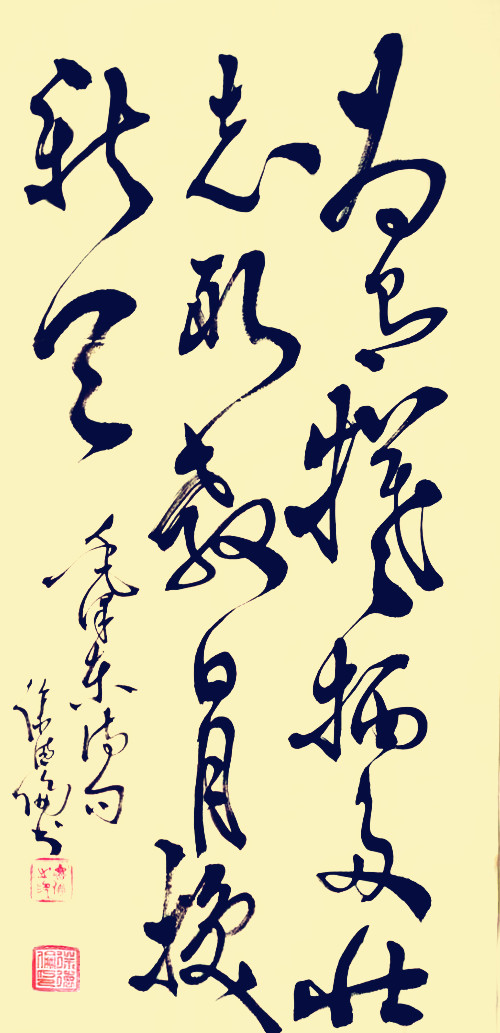 为有犧牲多壮
志敢教日月换
新天
毛泽东诗句
徐德 书